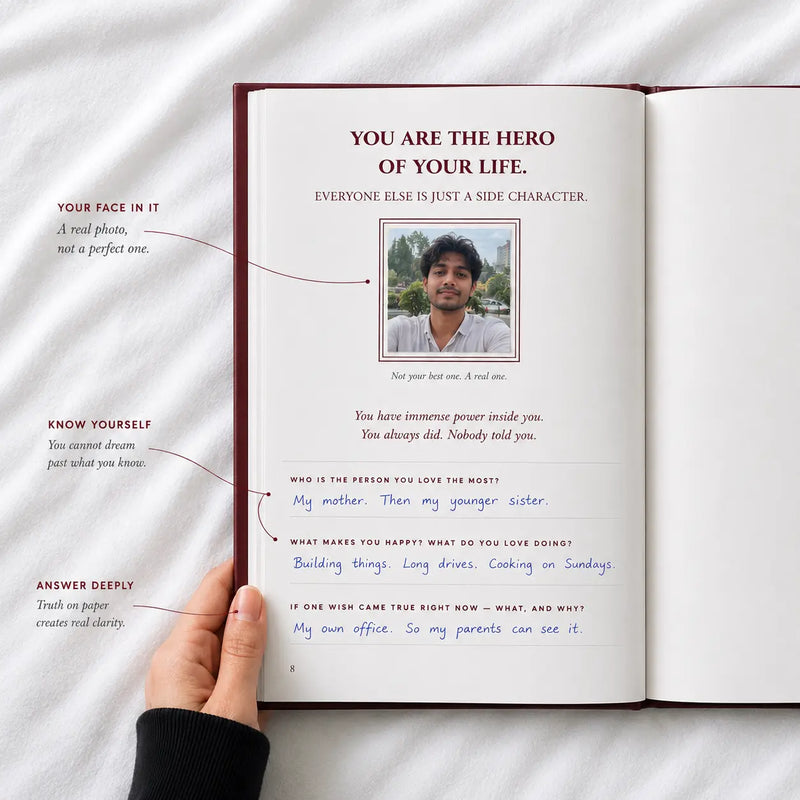 YOU ARE THE HERO
OF YOUR LIFE.
EVERYONE ELSE IS JUST A SIDE CHARACTER.
YOUR FACE IN IT
A real photo,
not a perfect one.
Not your best one. A real one.
You have immense power inside you.
You always did. Nobody told you.
KNOW YOURSELF
You cannot dream
past what you know.
WHO IS THE PERSON YOU LOVE THE MOST?
My mother. Then my younger sister.
WHAT MAKES YOU HAPPY? WHAT DO YOU LOVE DOING?
Building things. Long drives. Cooking on Sundays.
ANSWER DEEPLY
Truth on paper
creates real clarity.
IF ONE WISH CAME TRUE RIGHT NOW — WHAT, AND WHY?
My own office. So my parents can see it.
8